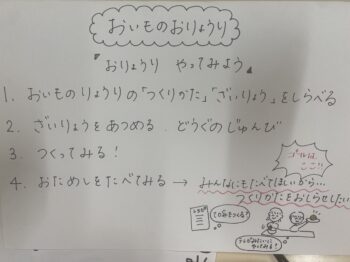 おいものおりょうり
『おりょうり やってみよう』
1. おいものりょうりの「つくりかた」「ざいりょう」をしらべる
2. ざいりょうをあつめる．どうぐのじゅんび
3. つくってみる！
ゴールはここ!!
4. おためしをたべてみる → みんなにもたべてほしいから…
つくりかたをおしらせしたい
レシピ